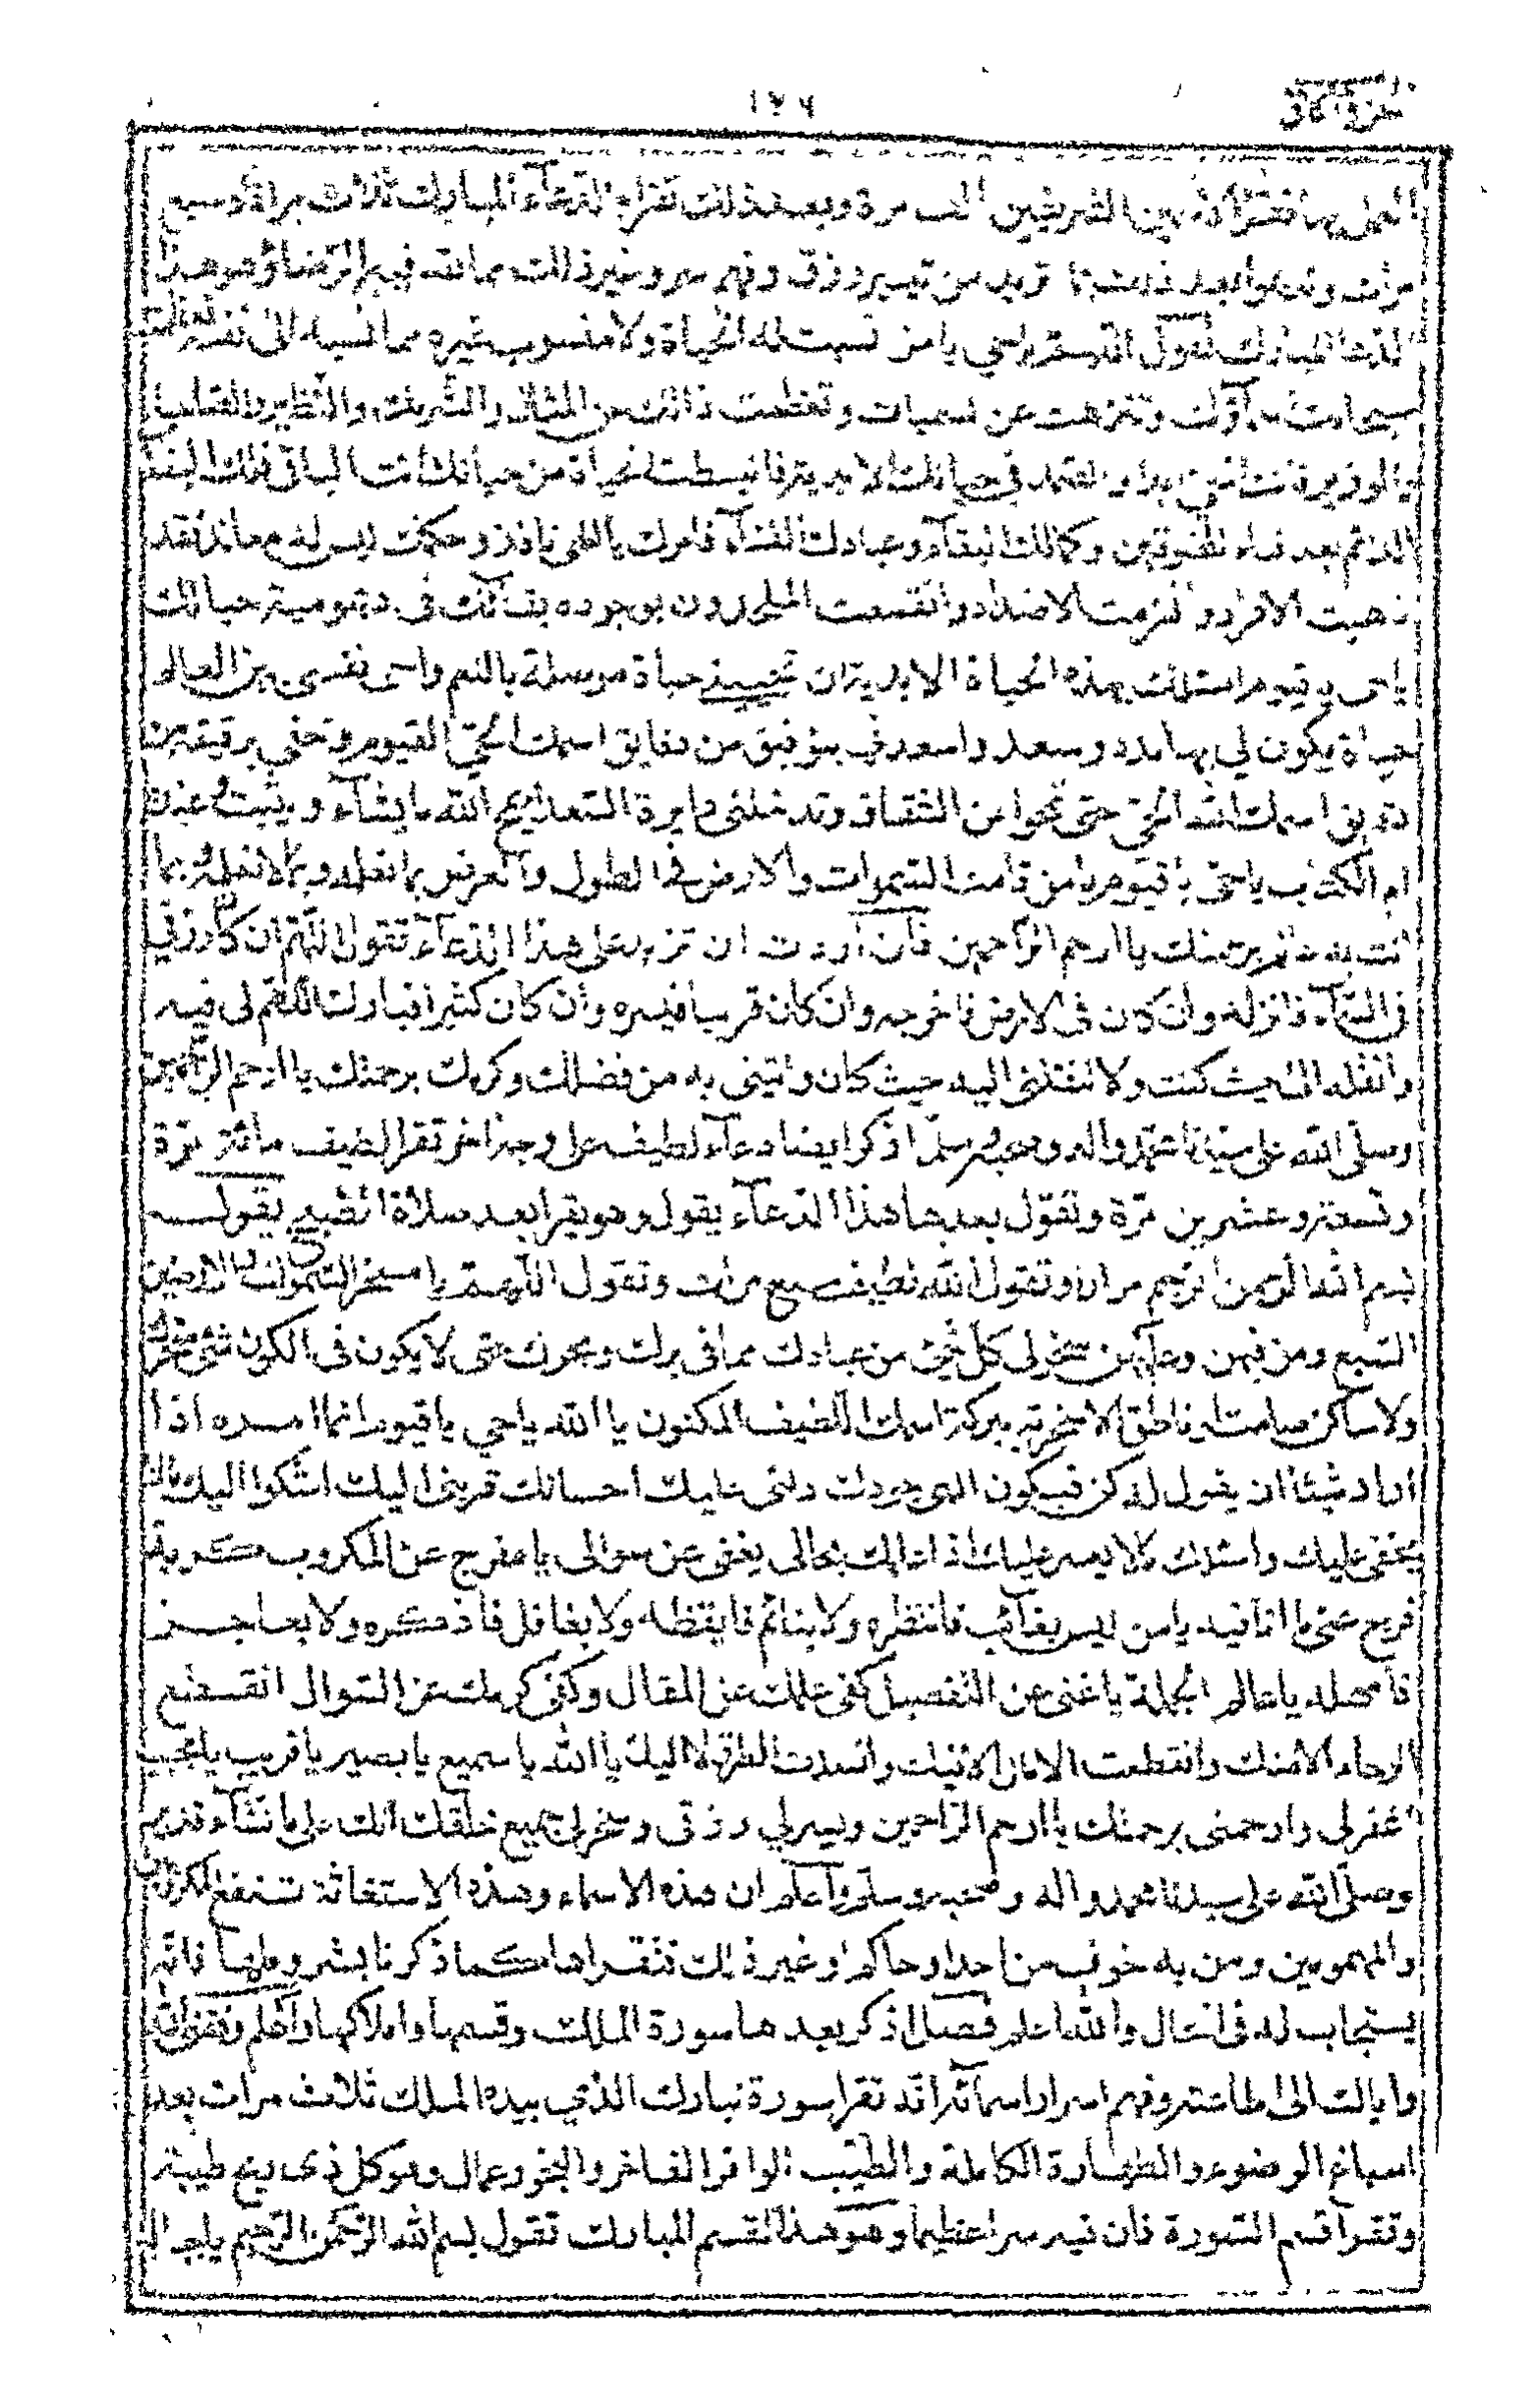 الجزء الثانى
١٢٦
العمل بها فتقرأ الاسمين الشريفين الف مرة وبعد ذلك تقرا الدعآء المبارك ثلاث مرات او سبع
مرات وتدعوا بعد ذلك بما تريد من تيسير رزق وفهم سر وغير ذلك مما لله فيه الرضا وهو هذا
الدعآ المبارك تقول اللهم الهي يا من نسبت له الحياة ولا منسوب غيره مما نسبه الى نفسه
سبحانك وتنزهت عن سميات وتعظمت ذاتك عن المثال والشريك والنظير
والوزير انت الغنى في حياتك الابدية فانبسطت حياة من حياتك انت الباقى فلك البقا
الدائم بعد فناء المخلوقين وكمالك البقآء وعبادك الفنآء فامرك يا الهى نافذ وحكمك ليس له معاند فقد
ذهبت الافراد وانهزمت الاضداد وانقمعت الملحدون بوجوده بقآئك فى ديمومية حياتك
ياحى يا قيوم اسئلك بهذه الحياة الابدية ان تحيينى حياة موصلة بالنعم واحى نفسى بين العالم
حياة يكون لي بها مدد وسعد واسعدنى بتوفيق من دقايق اسمك الحى القيوم وتحفنى برقيقة من
دقايق اسمك الله الحى حتى تمحوا من الشقاق وتدخلنى دايرة السعد يمحو الله ما يشآء ويثبت وعنده
ام الكتاب ياحى يا قيوم يا من قامت السموات والارض في الطول والعرض بما نعلم وبما لا نعلم وبما
انت به عالم برحمتك يا ارحم الراحمين فان اردت ان تزيد على هذا الدعآء تقول اللهم ان كان رزقى
فى السمآء فانزله وان كان فى الارض فاخرجه وان كان قريبا فيسره وان كان كثيرا فبارك اللهم لى فيه
وانقله الى حيث كنت ولا تنقلنى اليه حيث كان واتينى به من فضلك وكرمك برحمتك يا ارحم الراحمين
وصلى الله على سيدنا محمد واله وصحبه وسلم اذكر ايضا دعآء لطيف على وجه اخر تقرا لطيف مائة مرة
وتسعة وعشرين مرة وتقول بعدها هذا الدعآء يقول وهو يقرا بعد صلاة الصبح يقول
بسم الله الرحمن الرحيم مرار وتقول الله لطيف سبع مرات وتقول اللهم يا مسخر السموات السبع والارضين
السبع ومن فيهن وعليهن سخر لى كل شئ من عبادك مما فى برك وبحرك حتى لا يكون فى الكون شئ متحرك
ولا ساكن صامت او ناطق الا سخرته ببركة اسمك اللطيف المكنون يا الله ياحي يا قيوم انما امره اذا
اراد شيئا ان يقول له كن فيكون الهى جودك دلنى عليك احسانك قربنى اليك اشكوا اليك مالا
يخفى عليك واسئلك مالا يعسر عليك اذ علمك بحالى يغنى عن سوالى يا مفرج عن المكروب كربه
فرج عنى ما انا فيه يا من ليس بغآئب فانتظره ولا بنائم فايقظه ولا بغافل فاذكره ولا بعاجز
فامهله يا عالم الجملة يا غنى عن التفصيل كفى علمك عن المقال وكفى كرمك عن السوال انقطع
الرجاء الا منك وانقطعت الامال الا فيك وانسدت الطرق الا اليك يا الله يا سميع يا بصير يا قريب يا مجيب
اغفرلى وارحمنى برحمتك يا ارحم الراحمين ويسرلي رزقى وسخرلى جميع خلقك انك على ما تشآء قدير
وصلى الله على سيدنا محمد واله وصحبه وسلم واعلم ان هذه الاسماء وهذه الاستغاثة تنفع المكروبين
والمهمومين ومن به خوف من احد او حاكم او غير ذلك فتقراها كما ذكرنا بشروطها فانه
يستجاب له فى الحال والله اعلم فصل اذكر بعدها سورة الملك وقسمها واملاكها اعلم وفقنى الله
واياك الى طاعته وفهم اسرار اسمائه انه تقرا سورة تبارك الذى بيده الملك ثلاث مرات بعد
اسباغ الوضوء والطهارة الكاملة والطيب الوافر الفاخر والبخور عمال وهو كل ذى ريح طيبة
وتقرأ قسم السورة فان فيه سرا عظيما وهو هذا القسم المبارك تقول بسم الله الرحمن الرحيم